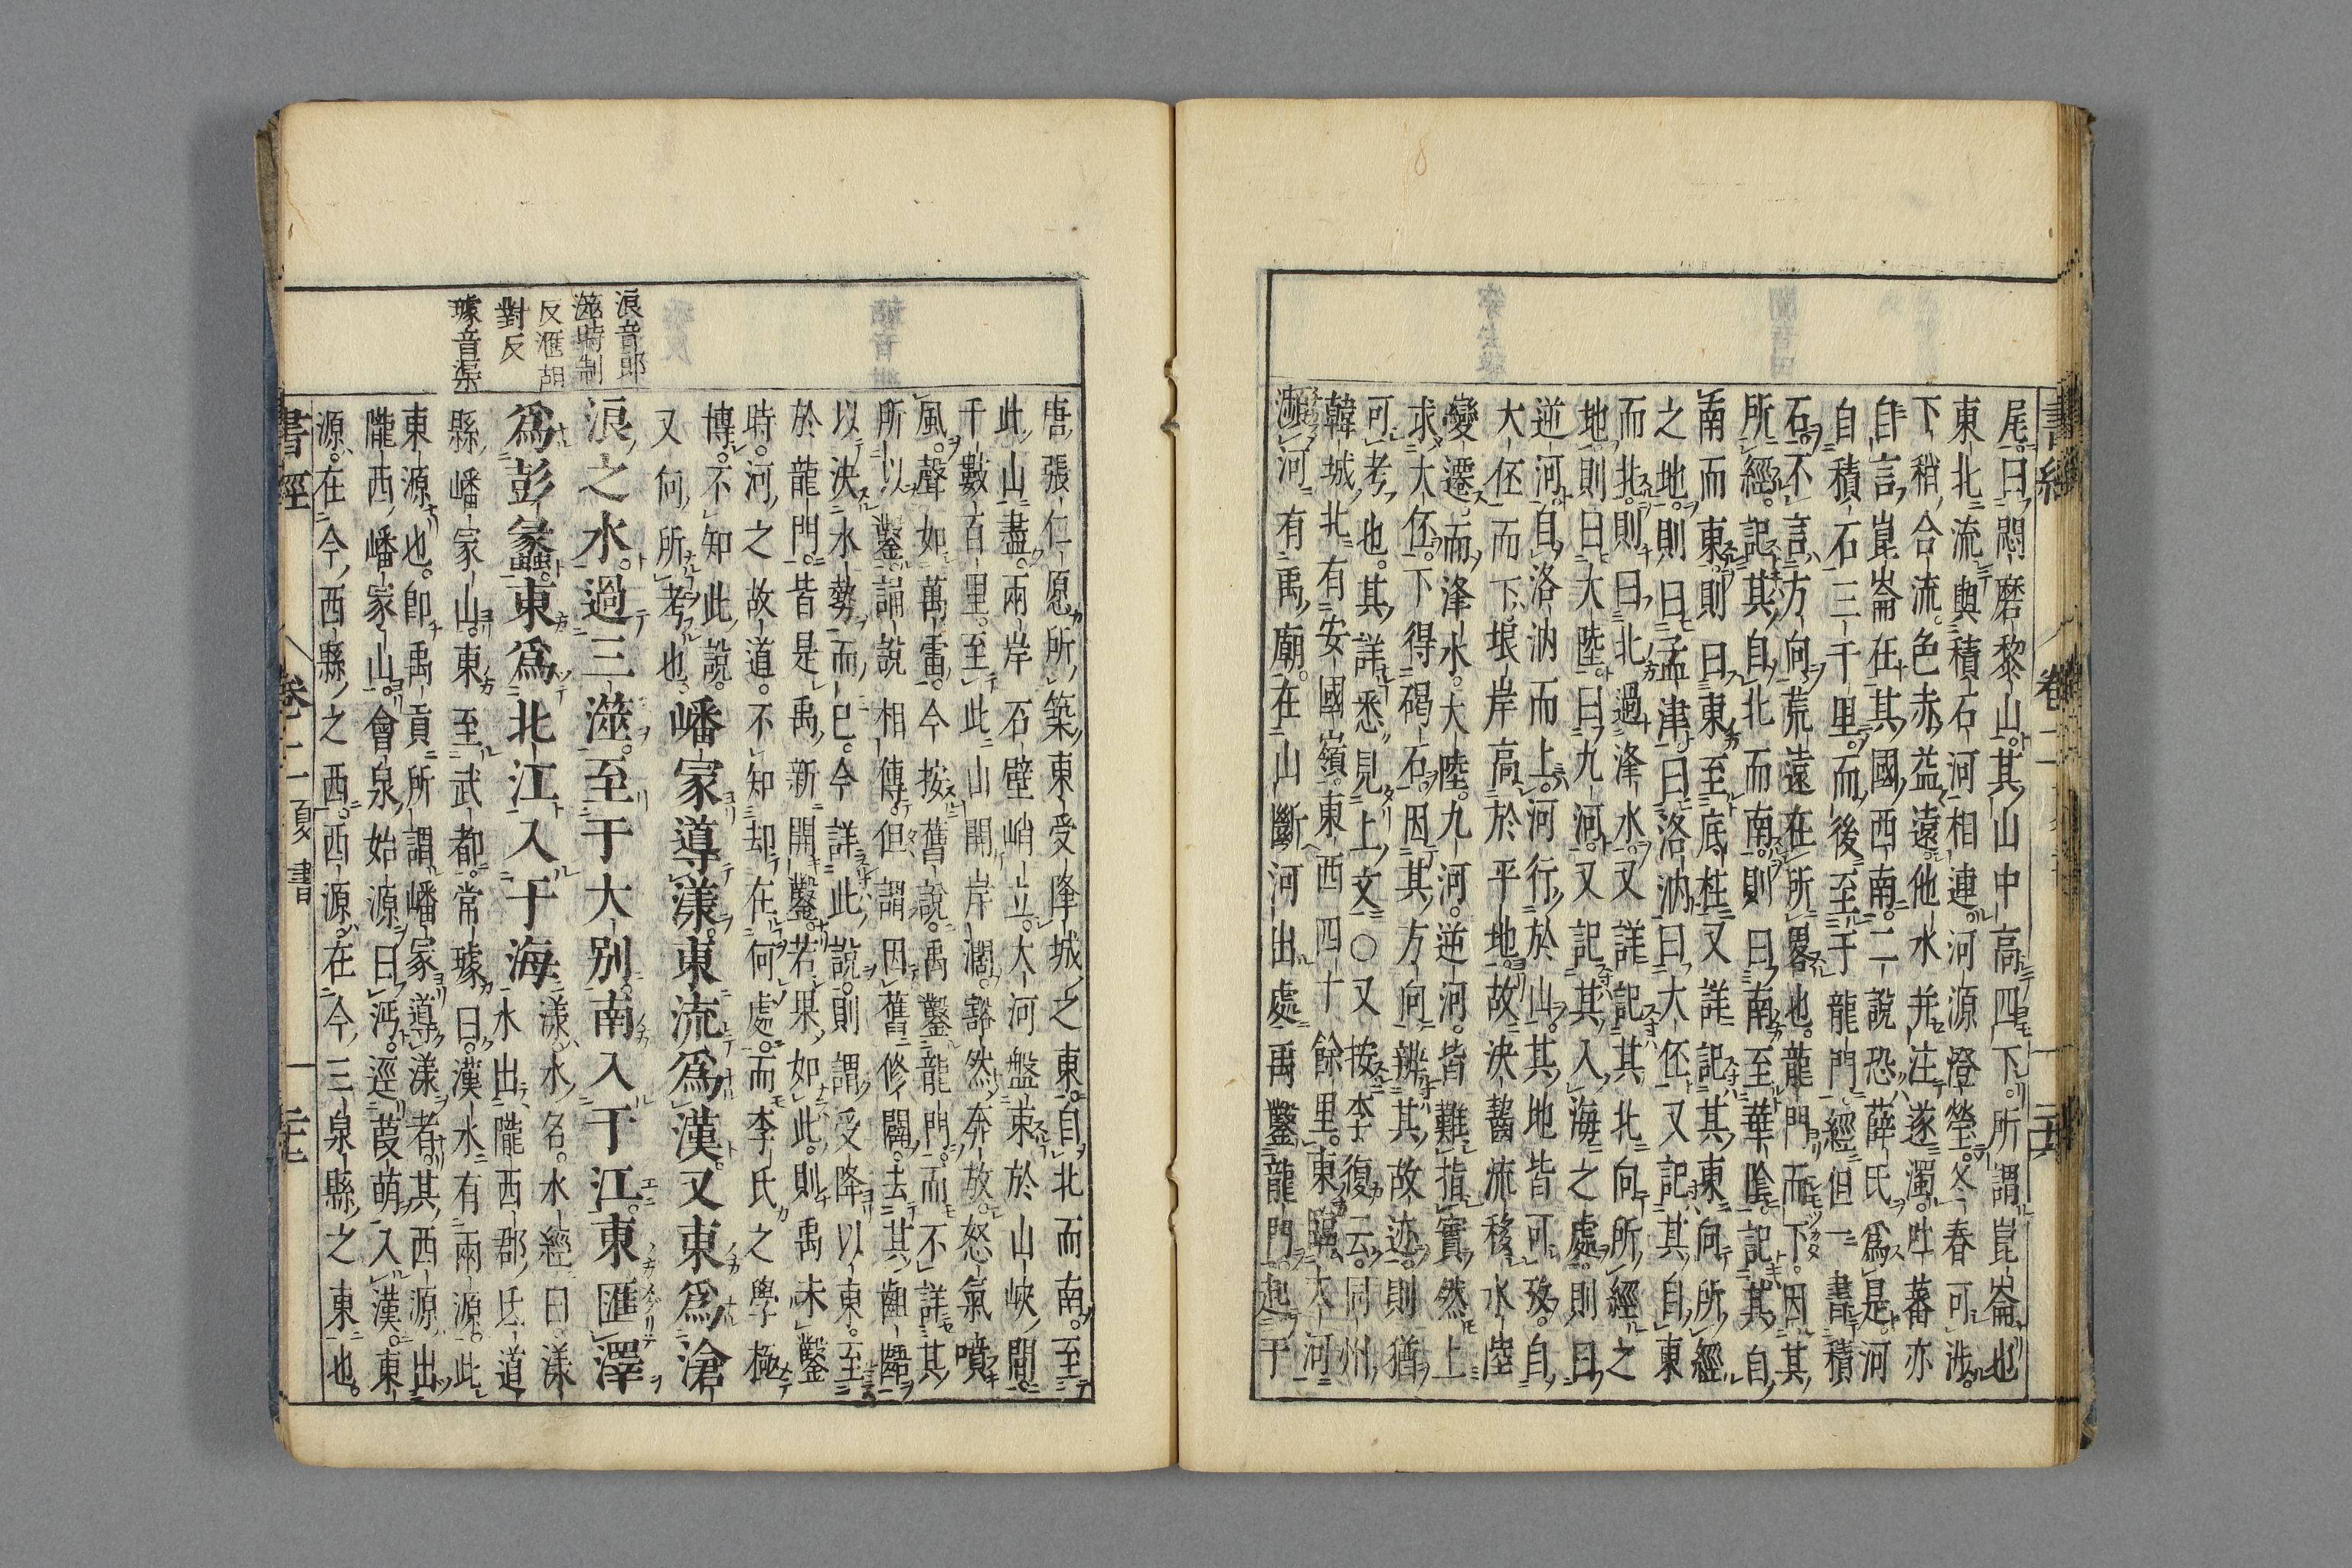 尾曰悶磨黎山其山中高四下所謂崑崙也
東北流與積石河相連河源澄瑩冬春可涉
下稍合流色赤益遠他水并注遂濁吐蕃亦
自言崑崙在其國西南二說恐薛氏爲是河
自積石三千里而後至于龍門經但一書積
石不言方向荒遠在所畧也龍門而下因其
所經記其自北而南則曰南至華陰記其自
南而東則曰東至底柱又詳記其東向所經
之地則曰孟津曰洛汭曰大伾又記其自東
而北則曰北過洚水又詳記其北向所經之
地則曰大陸曰九河又記其入海之處則曰
逆河自洛汭而上河行於山其地皆可攷自
大伾而下垠岸高於平地故決齧流移水陸
變遷而洚水大陸九河逆河皆難指實然上
求大伾下得碣石因其方向辨其故迹則猶
可考也其詳悉見上文○又按李復云同州
韓城北有安國嶺東西四十餘里東臨大河
瀕河有禹廟在山斷河出處禹鑿龍門起于
唐張仁愿所築東受降城之東自北而南至
此山盡兩岸石壁峭立大河盤束於山峽間
千數百里至此山開岸濶豁然奔放怒氣噴
風聲如萬雷今按舊說禹鑿龍門而不詳其
所以鑿誦說相傳但謂因舊修闢去其齟齬
以決水勢而已今詳此說則謂受降以東至
於龍門皆是禹新開鑿若果如此則禹未鑿
時河之故道不知却在何處而李氏之學極
博不知此說又何所考也
嶓冢導漾東流爲漢又東爲滄
浪之水過三澨至于大別南入于江東匯澤
爲彭蠡東爲北江入于海
漾水名水經曰漾
水出隴西郡氐道
縣嶓冢山東至武都常璩曰漢水有兩源此
東源也卽禹貢所謂嶓冢導漾者其西源出
隴西嶓冢山會泉始源曰沔逕葭萌入漢東
源在今西縣之西西源在今三泉縣之東也
浪音郎
澨時制
反滙胡
對反
璩音渠
書經 卷二 夏書